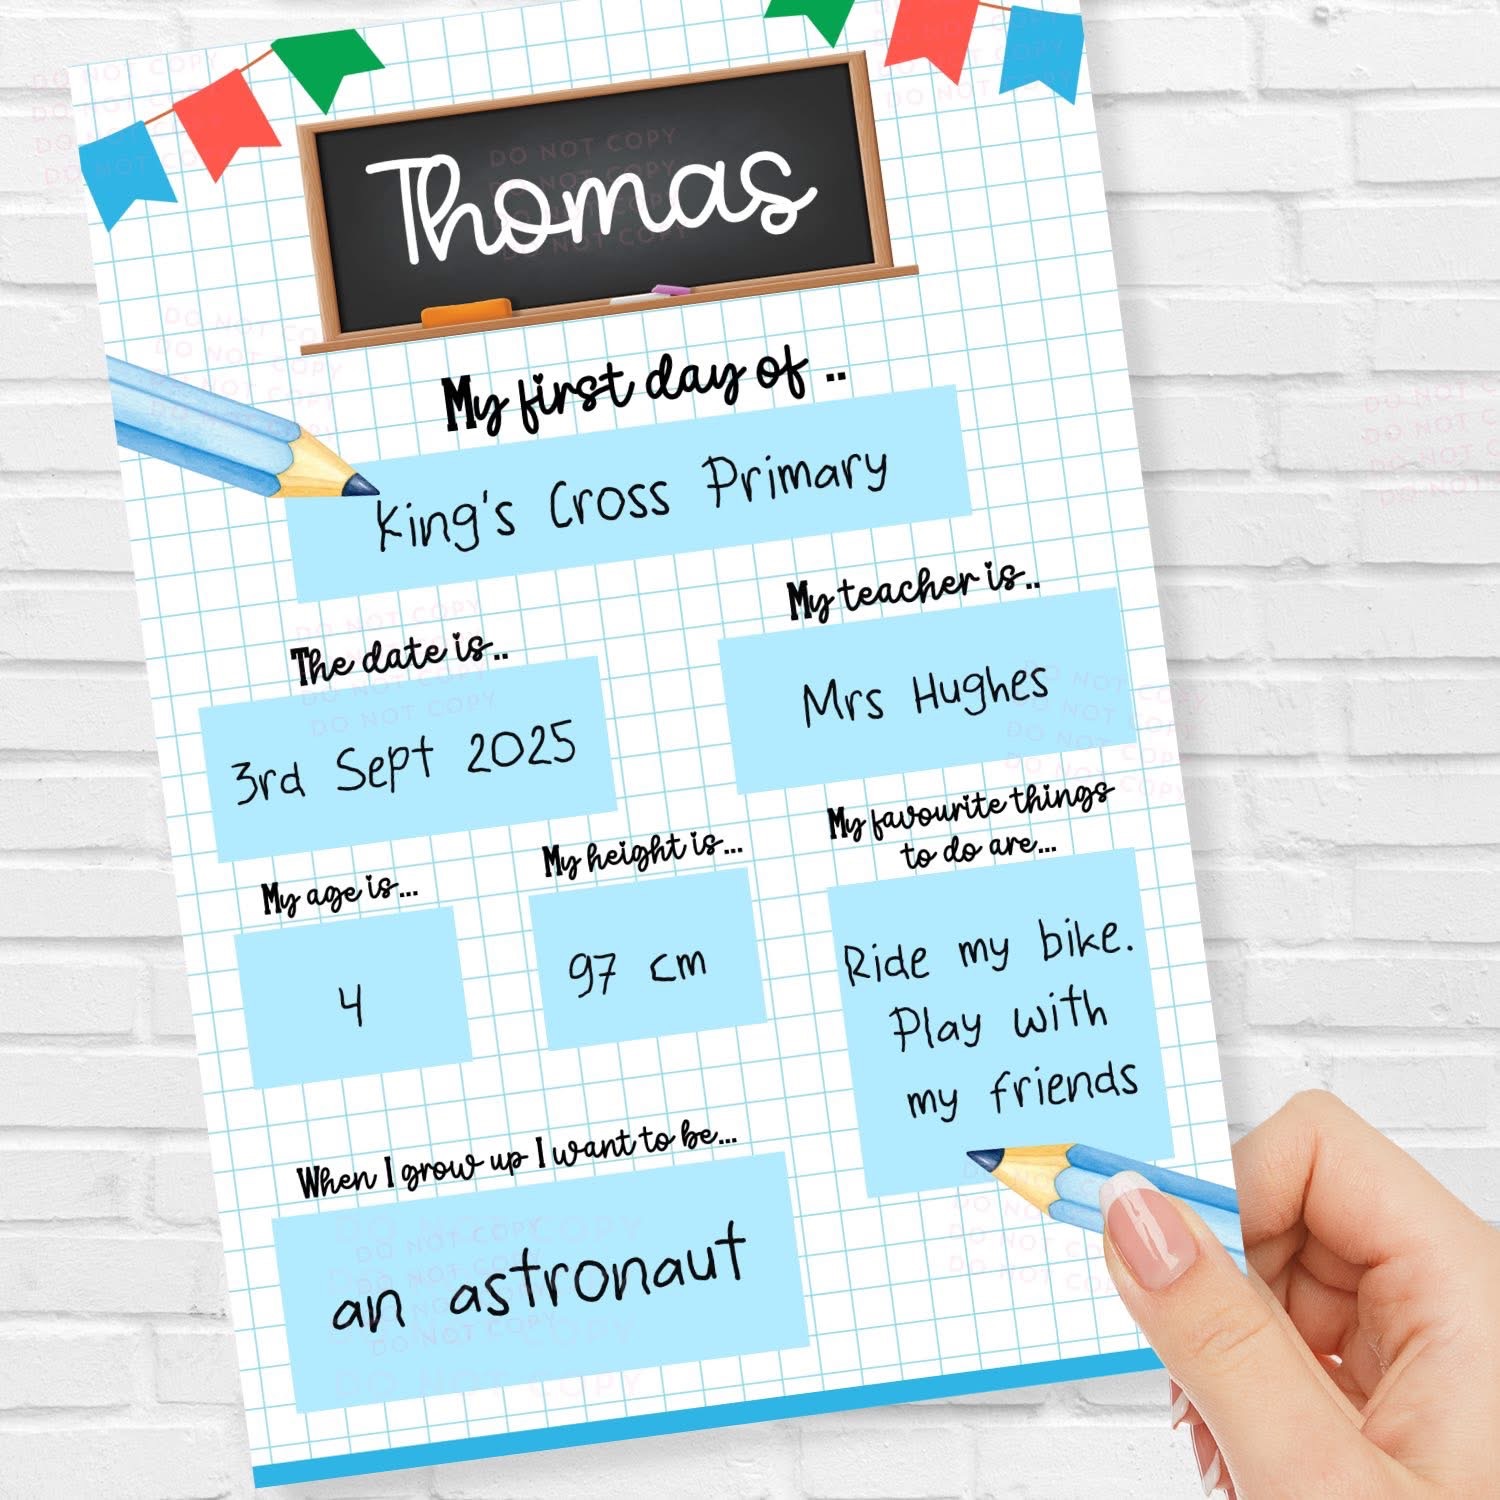 Thomas
My first day of ..
King's Cross Primary
My teacher is..
Mrs Hughes
The date is..
3rd Sept 2025
My favourite things
to do are...
Ride my bike.
Play with
my friends
My height is...
97 cm
My age is...
4
When I grow up I want to be...
an astronaut
DO NOT COPY
DO NOT COPY
DO NOT COPY
DO NOT COPY